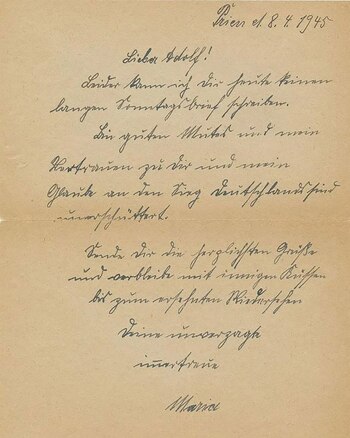 Prien d. 8.4.1945
Lieber Adolf!
Leider kann ich Dir heute keinen
langen Sonntagsbrief schreiben.
Bin guten Mutes und mein
Vertrauen zu Dir und mein
Glaube an den Sieg Deutschlands sind
unerschüttert.
Sende Dir die herzlichsten Grüße
und verbleibe mit innigen Küssen
bis zum ersehnten Wiedersehen
Deine unverzagte
immertreue
Maria